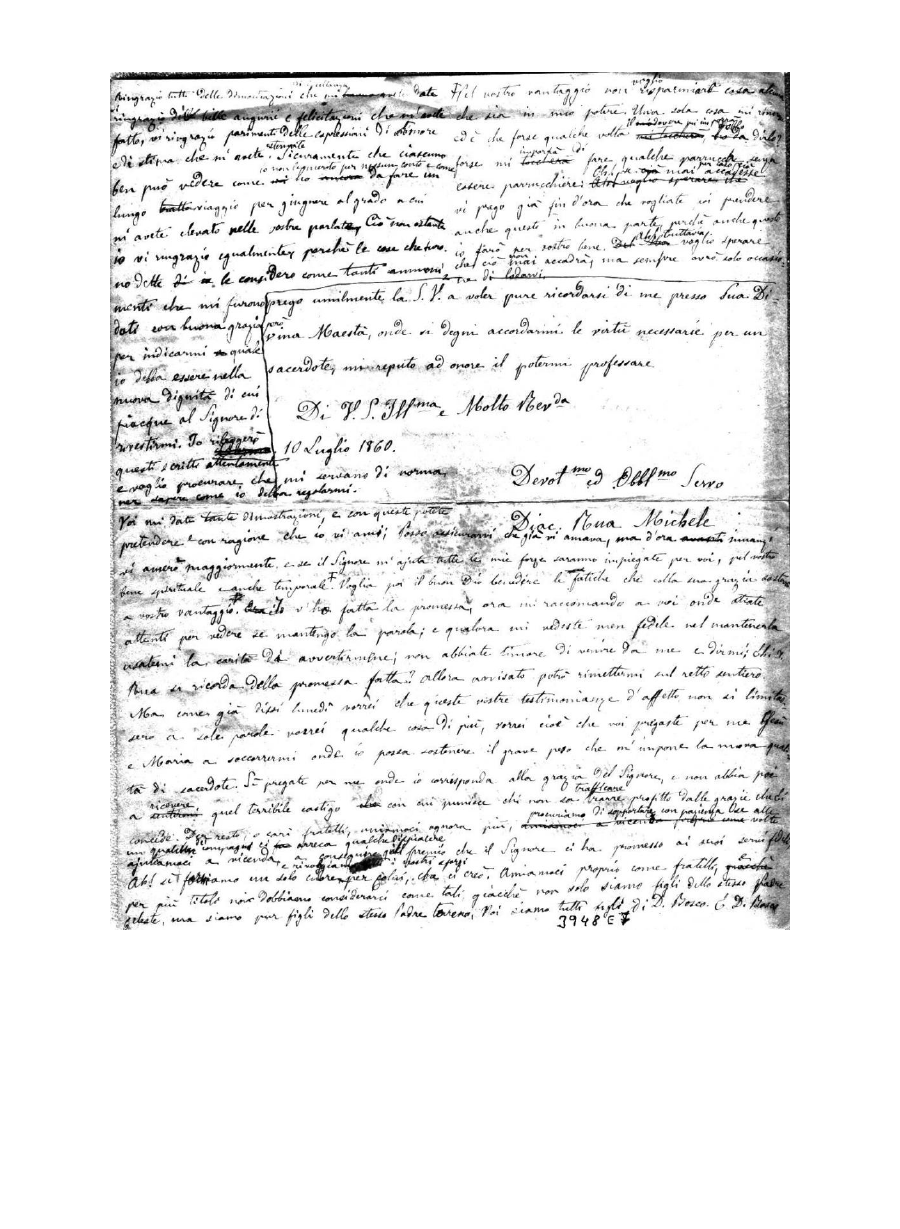 ringrazio tutte delle dimostrazioni che mi date
ringrazio delle belle augurie e felicitazioni che m'avete
fatto, vi ringrazio parimenti delle espressioni di amore
e di stima che mi avete. Sicuramente che ciascuno
io non ignorato per nessun conto e come
ben può vedere come ho ancora da fare un
lungo tratto viaggio per giugnere al grado a cui
m'avete elevato nelle vostre parlate, Ciò non ostante
io vi ringrazio egualmente, perchè le cose che furo-
no dette le considero come tanti ammoni-
menti che mi furono
dati con buona grazia
per indicarmi quale
io debba essere nella
nuova dignità di cui
piacque al Signore di
rivestirmi. Io rileggerò
questi scritti attentamente
e voglio procurare che mi servano di norma
per sapere come io debba regolarmi.
Nel vostro vantaggio non voglio risparmiare cosa alcuna
che sia in mio potere. Una sola cosa mi rincresce
ed è che forse qualche volta
forse mi toccherà importa di fare qualche parrucca senza
essere parrucchiere: Che se per caso ciò mai accadesse
vi prego già fin d'ora che vogliate voi prendere
anche questo in buona parte, perchè anche questo
io farò per vostro bene. tuttavia voglio sperare
che ciò non mai accadrà, ma sempre avrò solo occasio-
ne di lodarvi.
prego umilmente la S.V. a voler pure ricordarsi di me presso Sua Di-
vina Maestà, onde si degni accordarmi le virtù necessarie per un
sacerdote, mi reputo ad onore il potermi professare
Di V. S. Ill.ma e Molto Rev.da
10 Luglio 1860.
Devot.mo ed Obbl.mo Servo
Diac. Rua Michele
Voi mi date tante dimostrazioni, e con queste potete
pretendere e con ragione che io vi ami; Posso assicurarvi che già vi amava, ma d'ora avanti innanzi
vi amerò maggiormente, e se il Signore m'ajuta tutte le mie forze saranno impiegate per voi, pel vostro
bene spirituale e anche temporale. Voglia poi il buon Dio benedire le fatiche che colla sua grazia sosterrò
a vostro vantaggio. Io v'ho fatta la promessa, ora mi raccomando a voi onde stiate
attenti per vedere se mantengo la parola; e qualora mi vedeste men fedele nel mantenerla
usatemi la carità di avvertirmene; non abbiate timore di venire da me e dirmi;
Rua si ricorda della promessa fatta? allora avvisato potrò rimettermi sul retto sentiero
Ma come già dissi lunedì vorrei che queste vostre testimonianze d'affetto non si limitas-
sero a sole parole vorrei qualche cosa di più, vorrei cioè che voi pregaste per me Gesù
e Maria a soccorrermi onde io possa sostenere il grave peso che m'impone la nuova quali-
tà di sacerdote. Sì pregate per me onde io corrisponda alla grazia del Signore, e non abbia poi
a ricevere sentirmi quel terribile castigo che con cui punisce chi non sa trafficare trarre profitto dalle grazie che Ei
concede. Del resto, o cari fratelli, amiamoci ognora più, procuriamo di sopportare con pazienza Ose alle volte
un qualche compagno ci arreca qualche dispiacere
ajutiamoci a vicenda, e conseguire quel premio che il Signore ci ha promesso ai suoi servi fedeli
Ah! sì formiamo un solo cuore per colui, che ci creò. Amiamoci proprio come fratelli,
per più titoli noi dobbiamo considerarci come tali, giacchè non solo siamo figli dello stesso Padre
celeste, ma siamo pur figli dello stesso Padre terreno, Noi siamo tutti figli di D. Bosco. E D. Bosco
3948 E 7